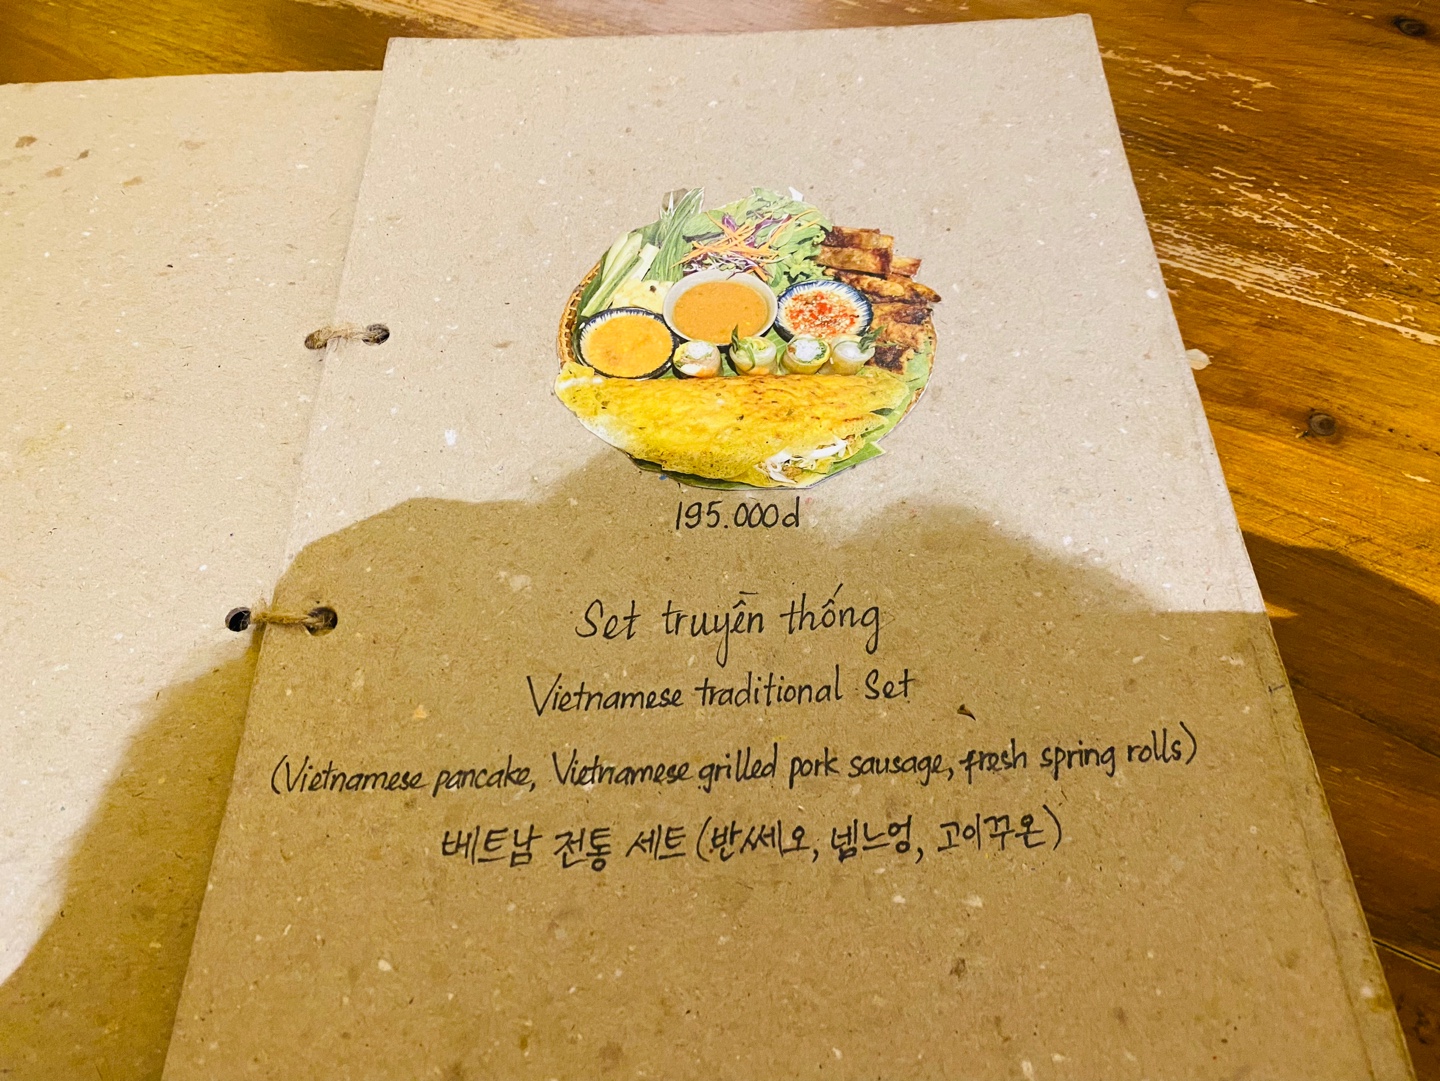 195.000đ
Set truyền thống
Vietnamese traditional Set
(Vietnamese pancake, Vietnamese grilled pork sausage, fresh spring rolls)
베트남 전통 세트 (반쎄오, 넴느엉, 고이꾸온)